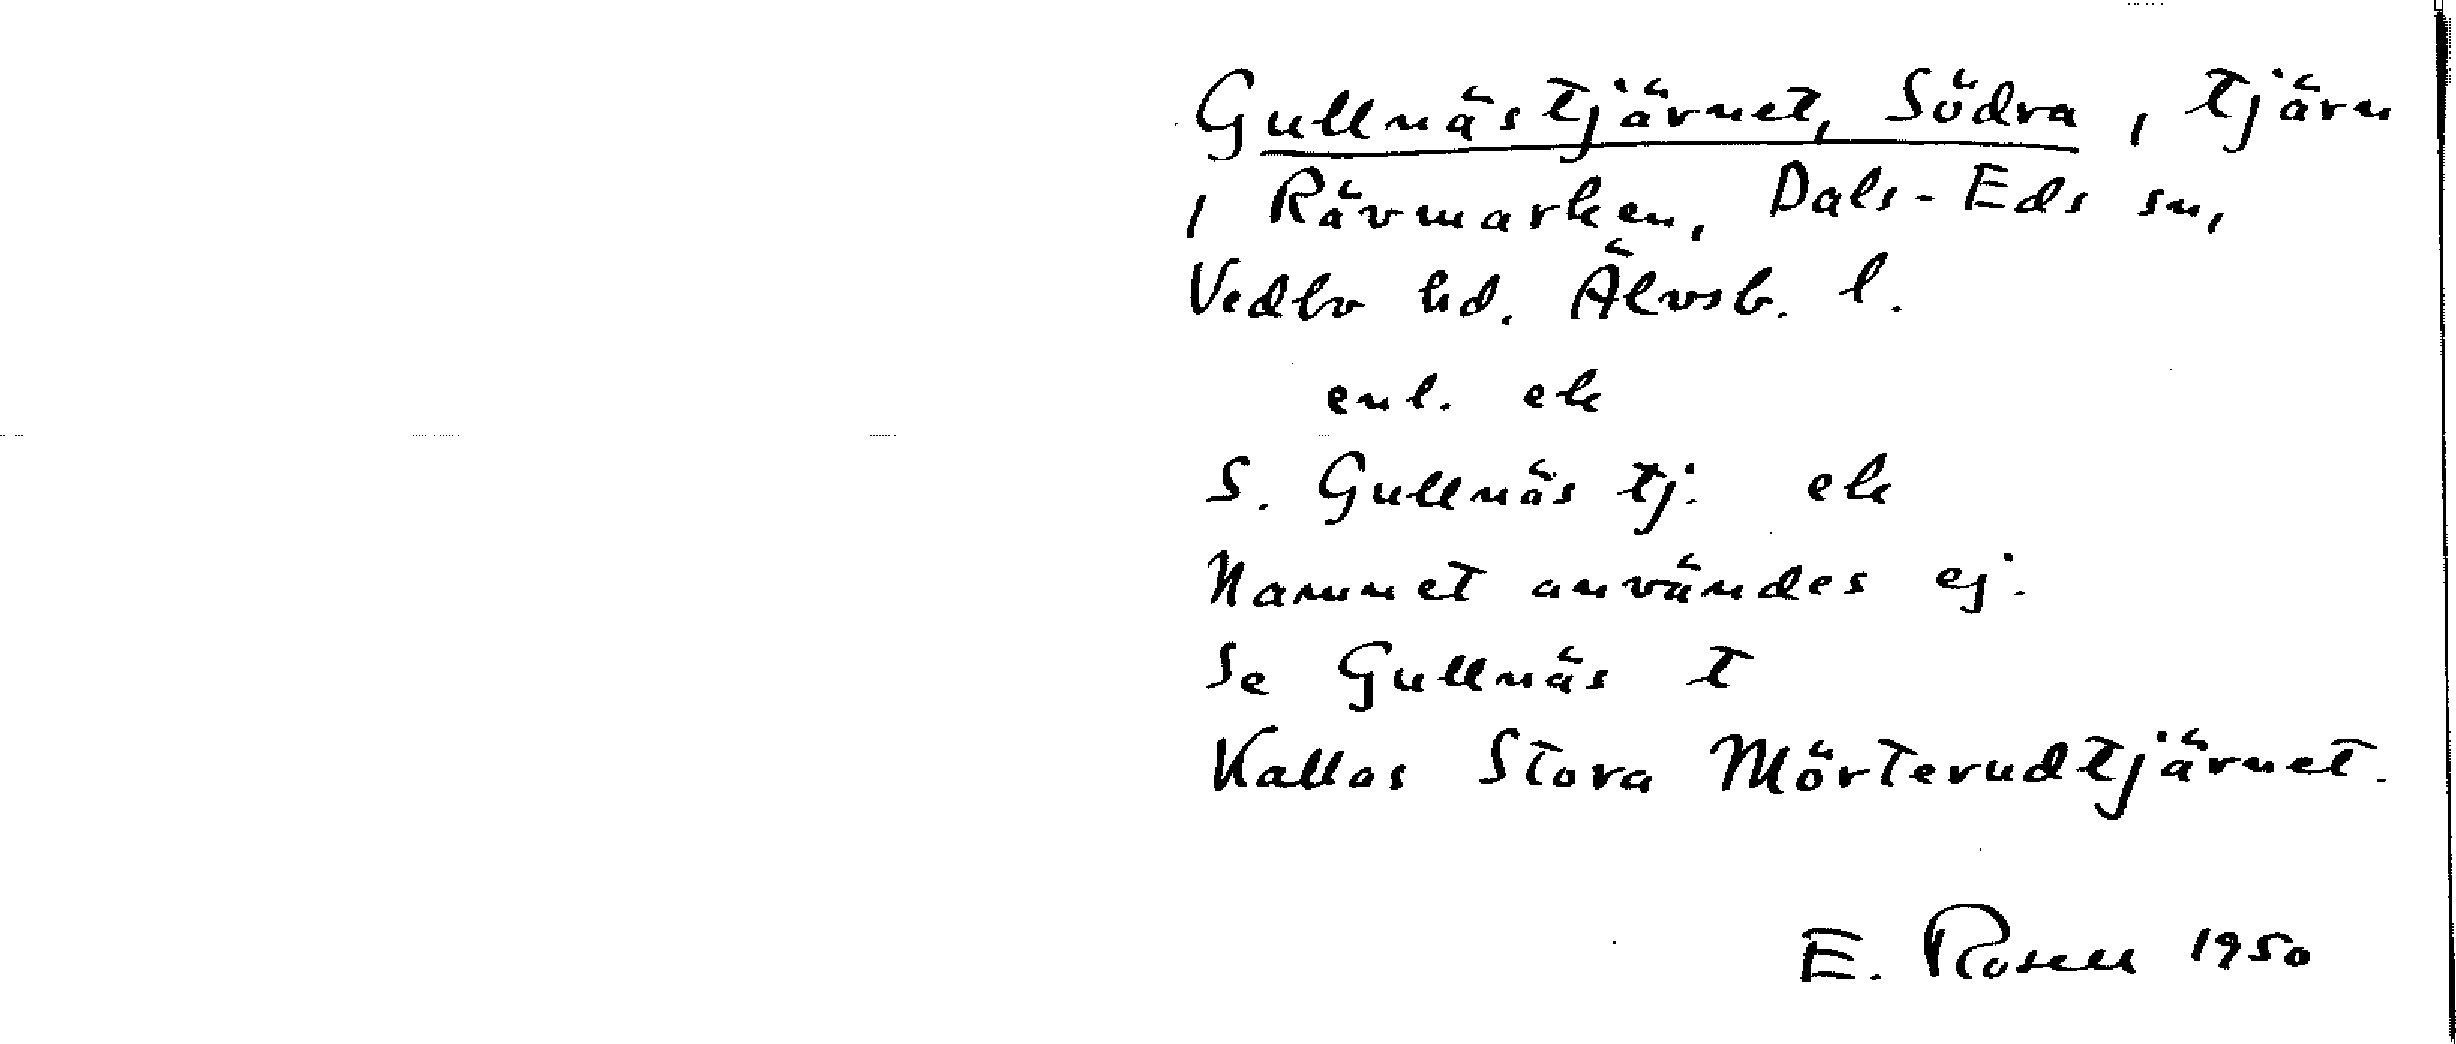 Gullnästjärnet, Södra, tjärn
i Rävmarken, Dals-Eds sn,
Vedbo hd. Älvsb. l.
enl. ek
S. Gullnäs tj. ek
Namnet användes ej.
Se Gullnäs t
Kallas Stora Mörterudtjärnet.
E. Rosell 1950